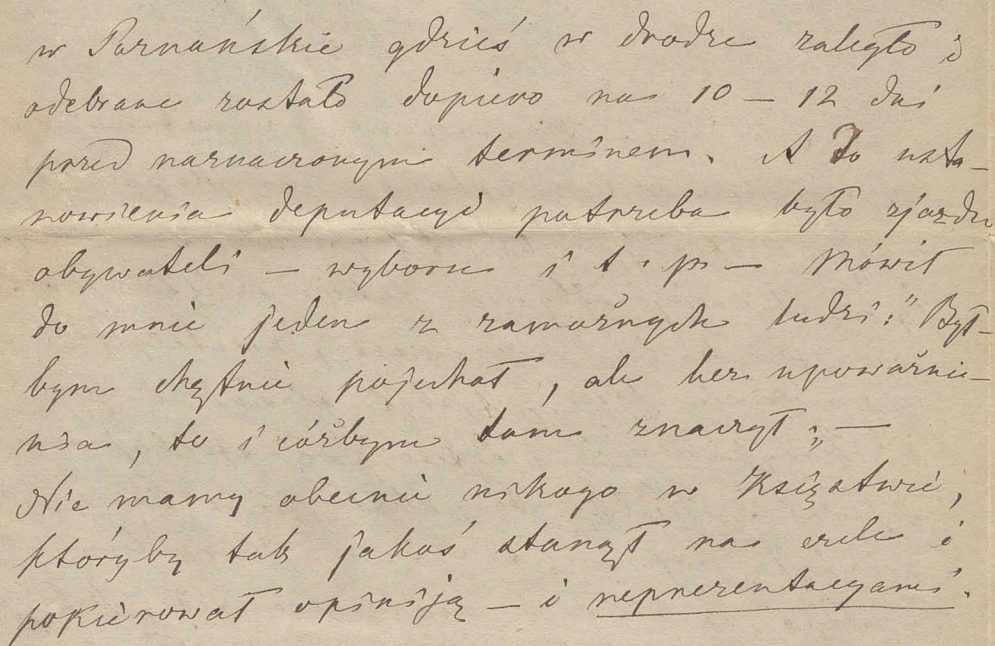 w Poznańskie gdzieś w drodze zaległo i
odebrane zostało dopiero na 10 – 12 dni
przed naznaczonym terminem. A do usta-
nowienia deputacyi potrzeba było zjazdu
obywateli – wyboru i t. p – Mówił
do mnie jeden z zamożnych ludzi: "Był-
bym chętnie pojechał, ale bez upoważnie-
nia, to i cóżbym tam znaczył „ –
Nie mamy obecnie nikogo w Księstwie,
któryby tak jakoś stanął na czele i
pokierował opiniją – i reprezentacyami.